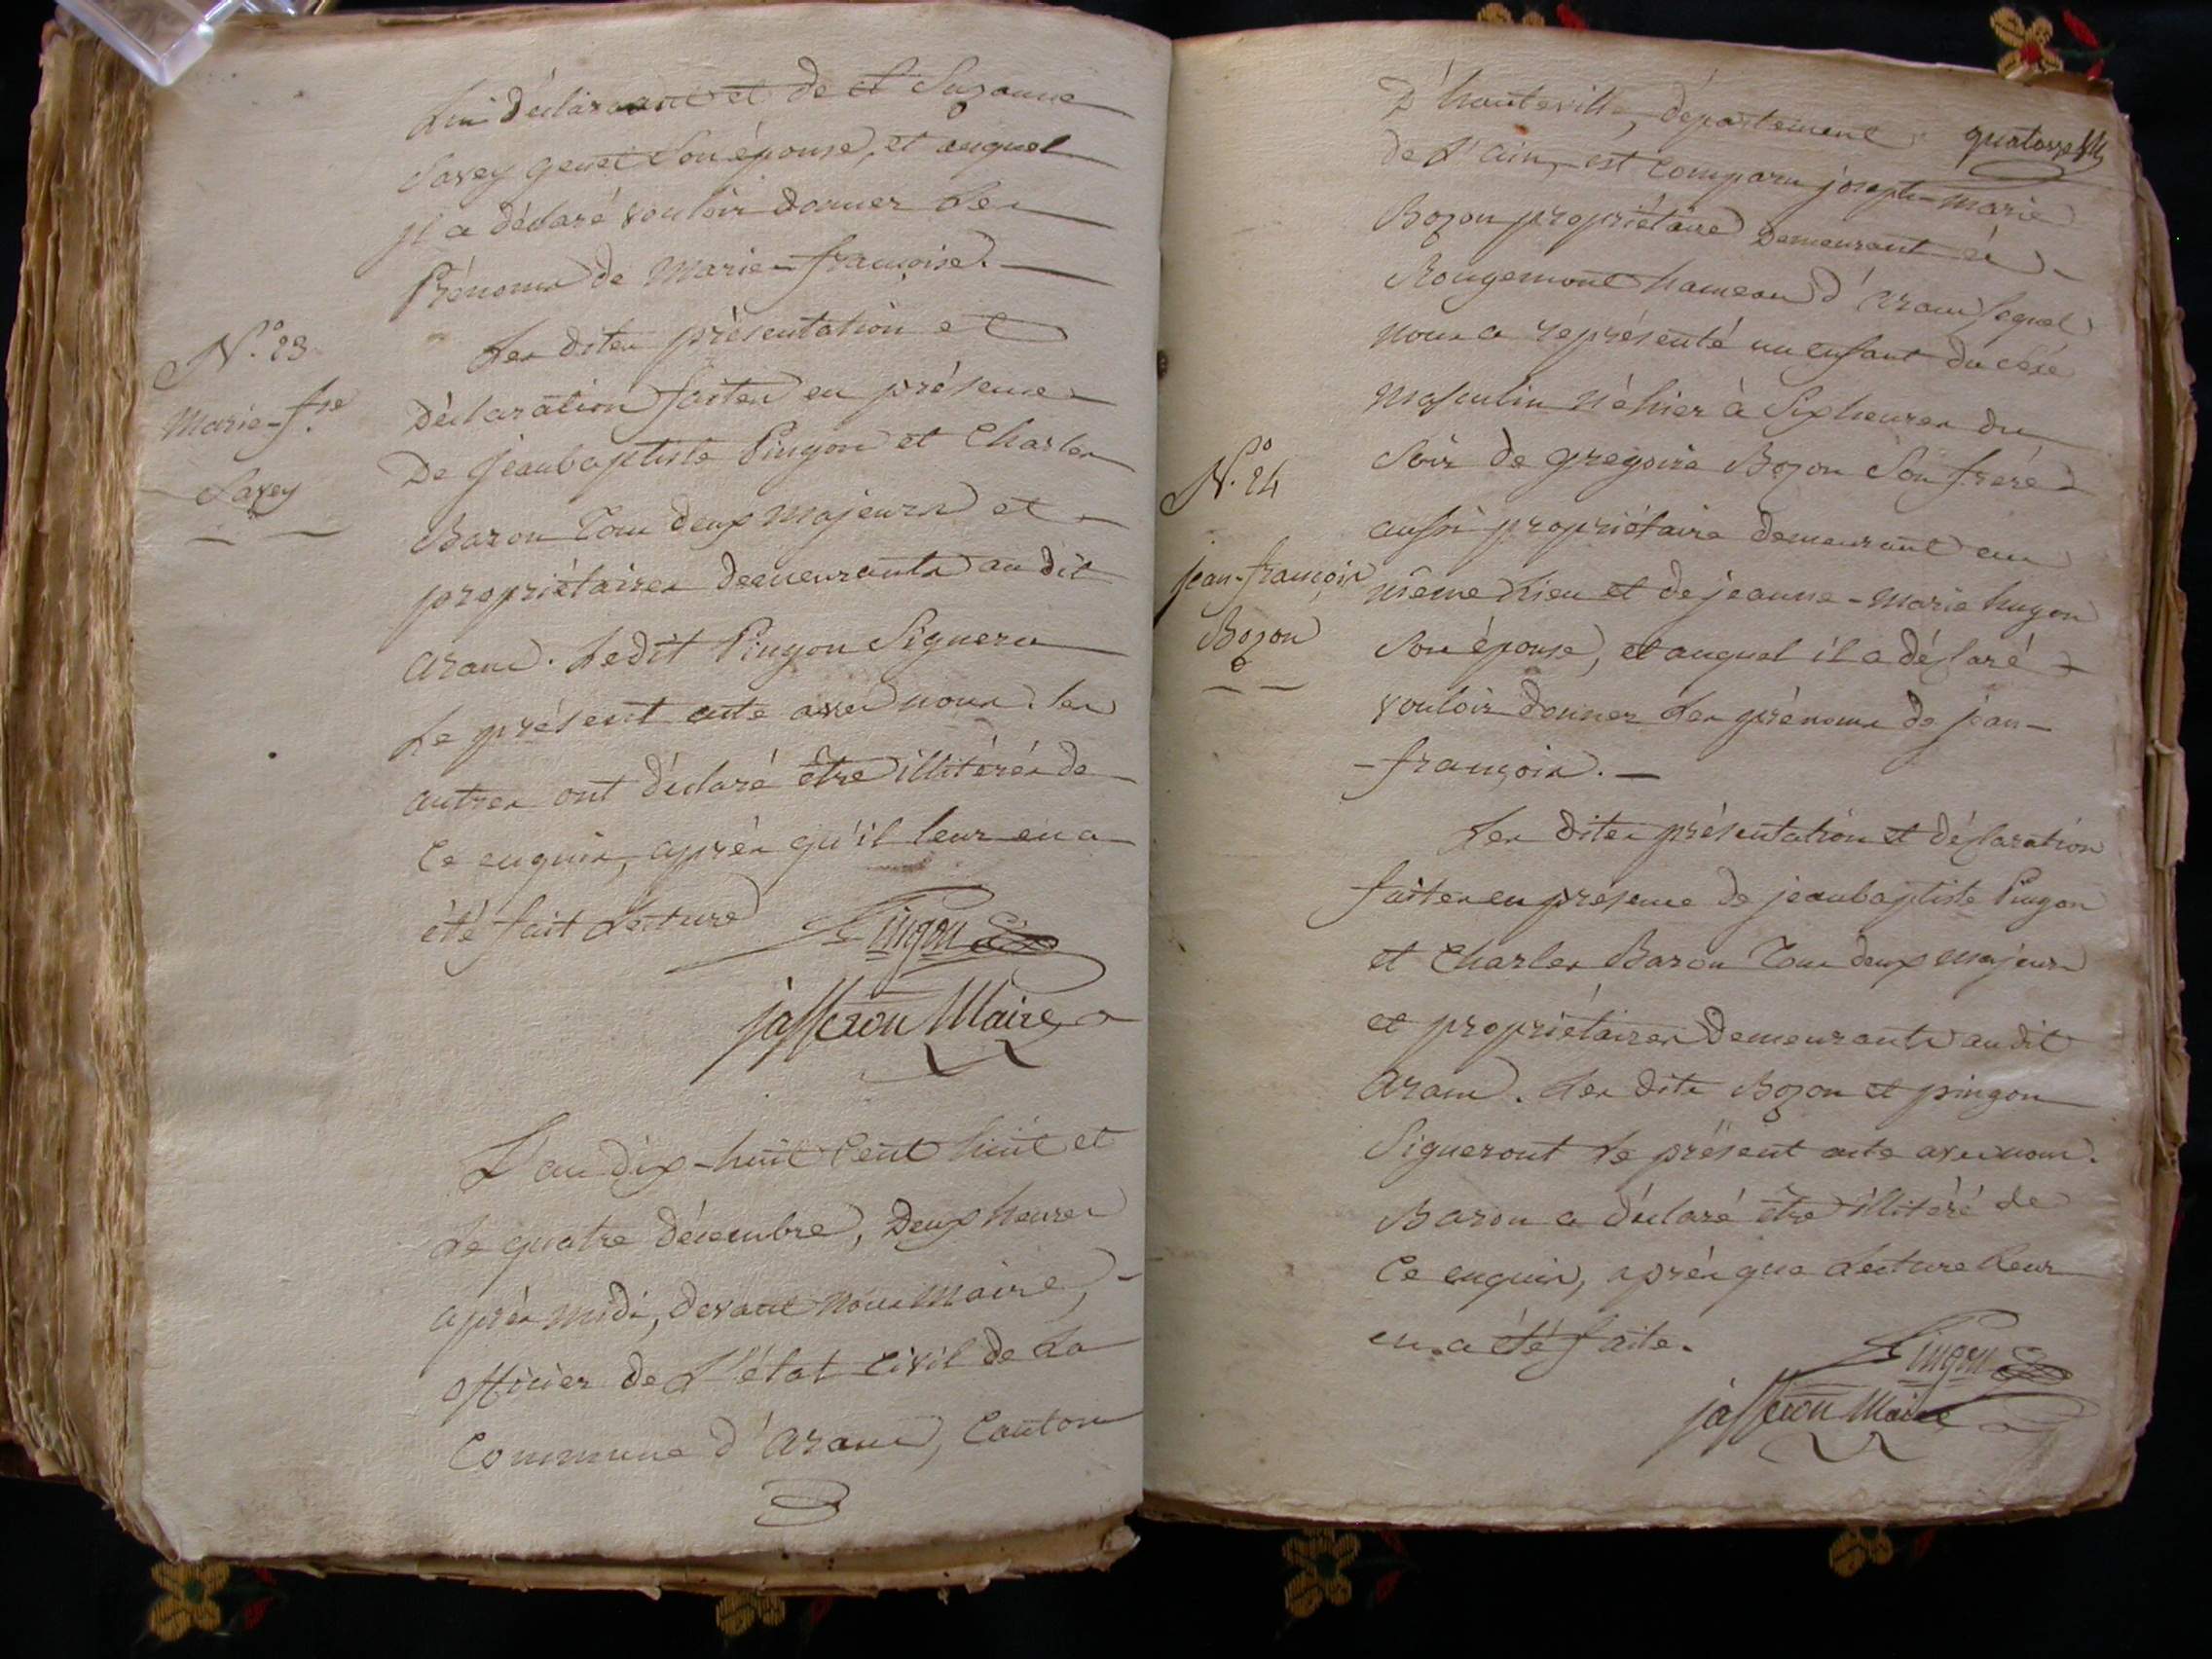 Lui déclarant et de et Suzanne
Savey genet Son épouse, et auquel
il a déclaré vouloir donner Les
Prénoms de Marie-françoise.
N.º 23
Marie-f.se
Savey
Les dites présentation et
Déclaration faites en présence
De jeanbaptiste Pingon et Charles
Baron Tous deux majeurs et
propriétaires demeurants au dit
aranc. Ledit Pingon Signera
Le présent acte avec nous. les
autres ont déclaré être illitérés de
Ce enquis, après qu'il leur en a
été fait Lecture
Pingon
jasseron Maire
L'an dix-huit Cent huit et
Le quatre décembre, Deux heures
après midi, devant nous Maire,
officier de L'état Civil de La
Commune d'aranc, Canton
D'hauteville, département
quatorze
de L'ain, est Comparu joseph-marie
Bozon propriétaire Demeurant à
Rougemont hameau d'aranc lequel
nous a représenté un enfant du sexe
masculin né hier à Six heures du
N.º 24
jean-françois
Bozon
Soir de gregoire Bozon Son frere
aussi propriétaire demeurant au
même Lieu et de jeanne-marie hugon
Son épouse, et auquel il a déclaré
vouloir donner Les prénoms de jean-
-françois.
Les dites présentation et déclaration
faites en présence de jeanbaptiste Pingon
et Charles Baron Tous deux majeurs
et propriétaires Demeurants au dit
aranc. Les dits Bozon et pingon
Signeront Le présent acte avec nous.
Baron a déclaré être illitéré de
Ce enquis, après que Lecture Leur
en a été faite.
Pingon
jasseron Maire